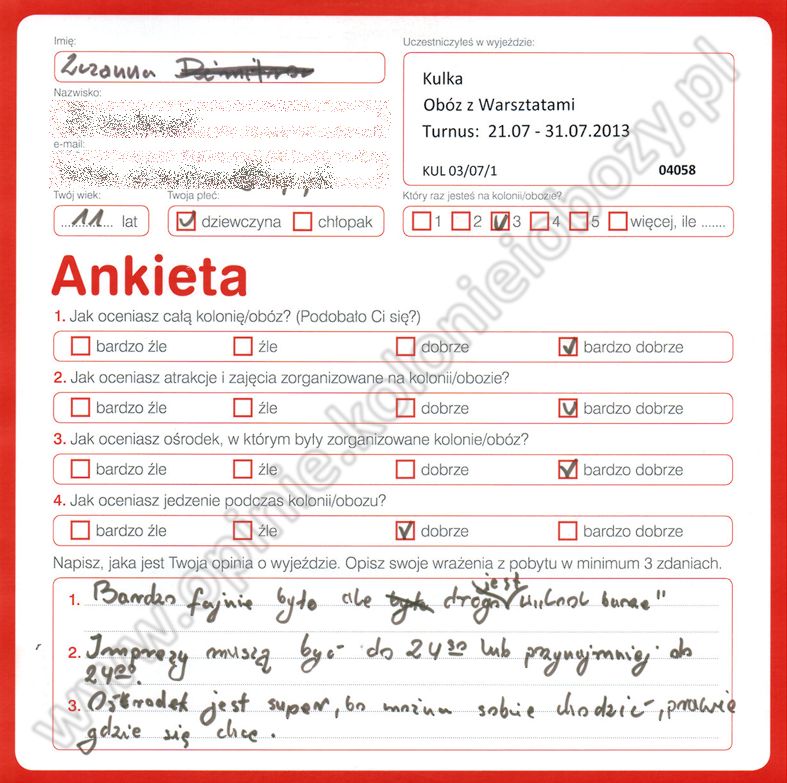 Imię:
Zuzanna
Uczestniczyłeś w wyjeździe:
Kulka
Obóz z Warsztatami
Turnus: 21.07 - 31.07.2013
KUL 03/07/1 04058
Nazwisko:
e-mail:
Twój wiek:
11 lat
Twoja płeć:
dziewczyna chłopak
Który raz jesteś na kolonii/obozie?
1 2 3 4 5 więcej, ile .......
Ankieta
1. Jak oceniasz całą kolonię/obóz? (Podobało Ci się?)
bardzo źle źle dobrze bardzo dobrze
2. Jak oceniasz atrakcje i zajęcia zorganizowane na kolonii/obozie?
bardzo źle źle dobrze bardzo dobrze
3. Jak oceniasz ośrodek, w którym były zorganizowane kolonie/obóz?
bardzo źle źle dobrze bardzo dobrze
4. Jak oceniasz jedzenie podczas kolonii/obozu?
bardzo źle źle dobrze bardzo dobrze
Napisz, jaka jest Twoja opinia o wyjeździe. Opisz swoje wrażenia z pobytu w minimum 3 zdaniach.
1. Bardzo fajnie było ale jest
2. Imprezy muszą być do 24³⁰ lub przynajmniej do
24⁰⁰.
3. Ośrodek jest super, bo można sobie chodzić, prawie
gdzie się chce.
www.opinie.kolonieiobozy.pl